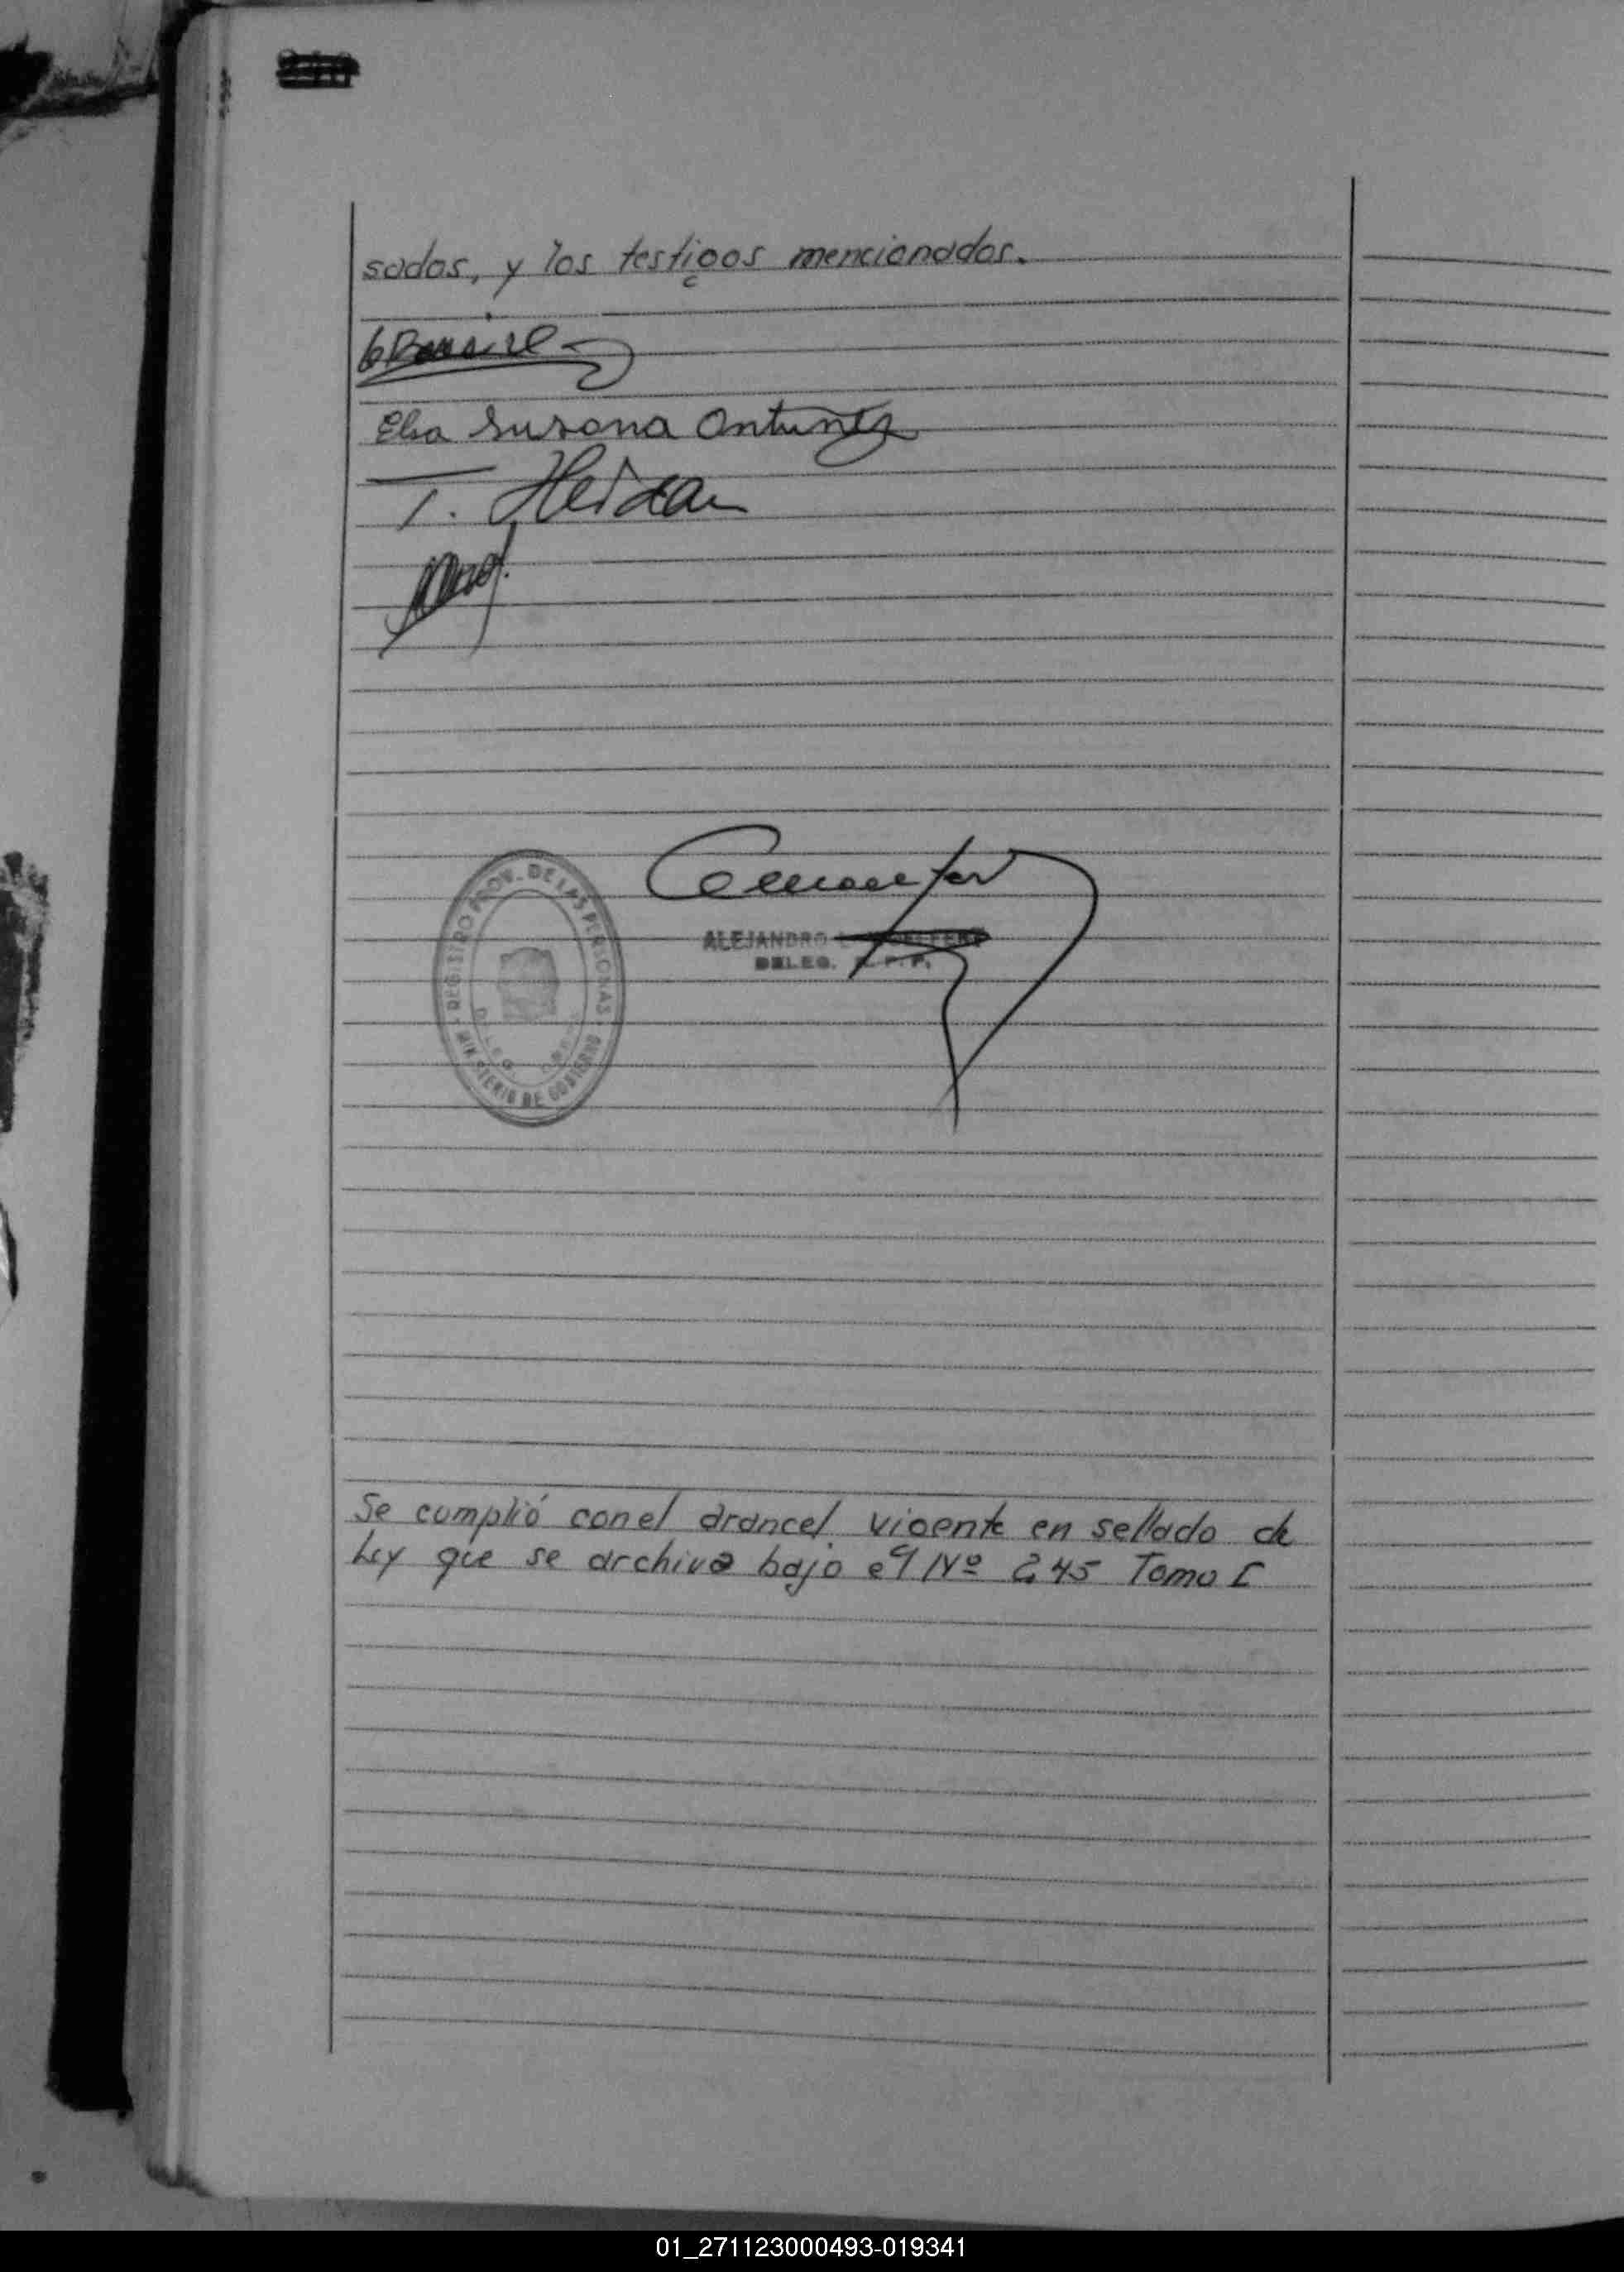 sados, y los testigos mencionados.
Elsa Susana Antunez
REGISTRO PROV. DE LAS PERSONAS
MINISTERIO DE GOBIERNO
DELEG.
ALEJANDRO
DELEG. R. P. P.
Se cumplió con el arancel vigente en sellado de
Ley que se archiva bajo el Nº 245 Tomo I
01_271123000493-019341